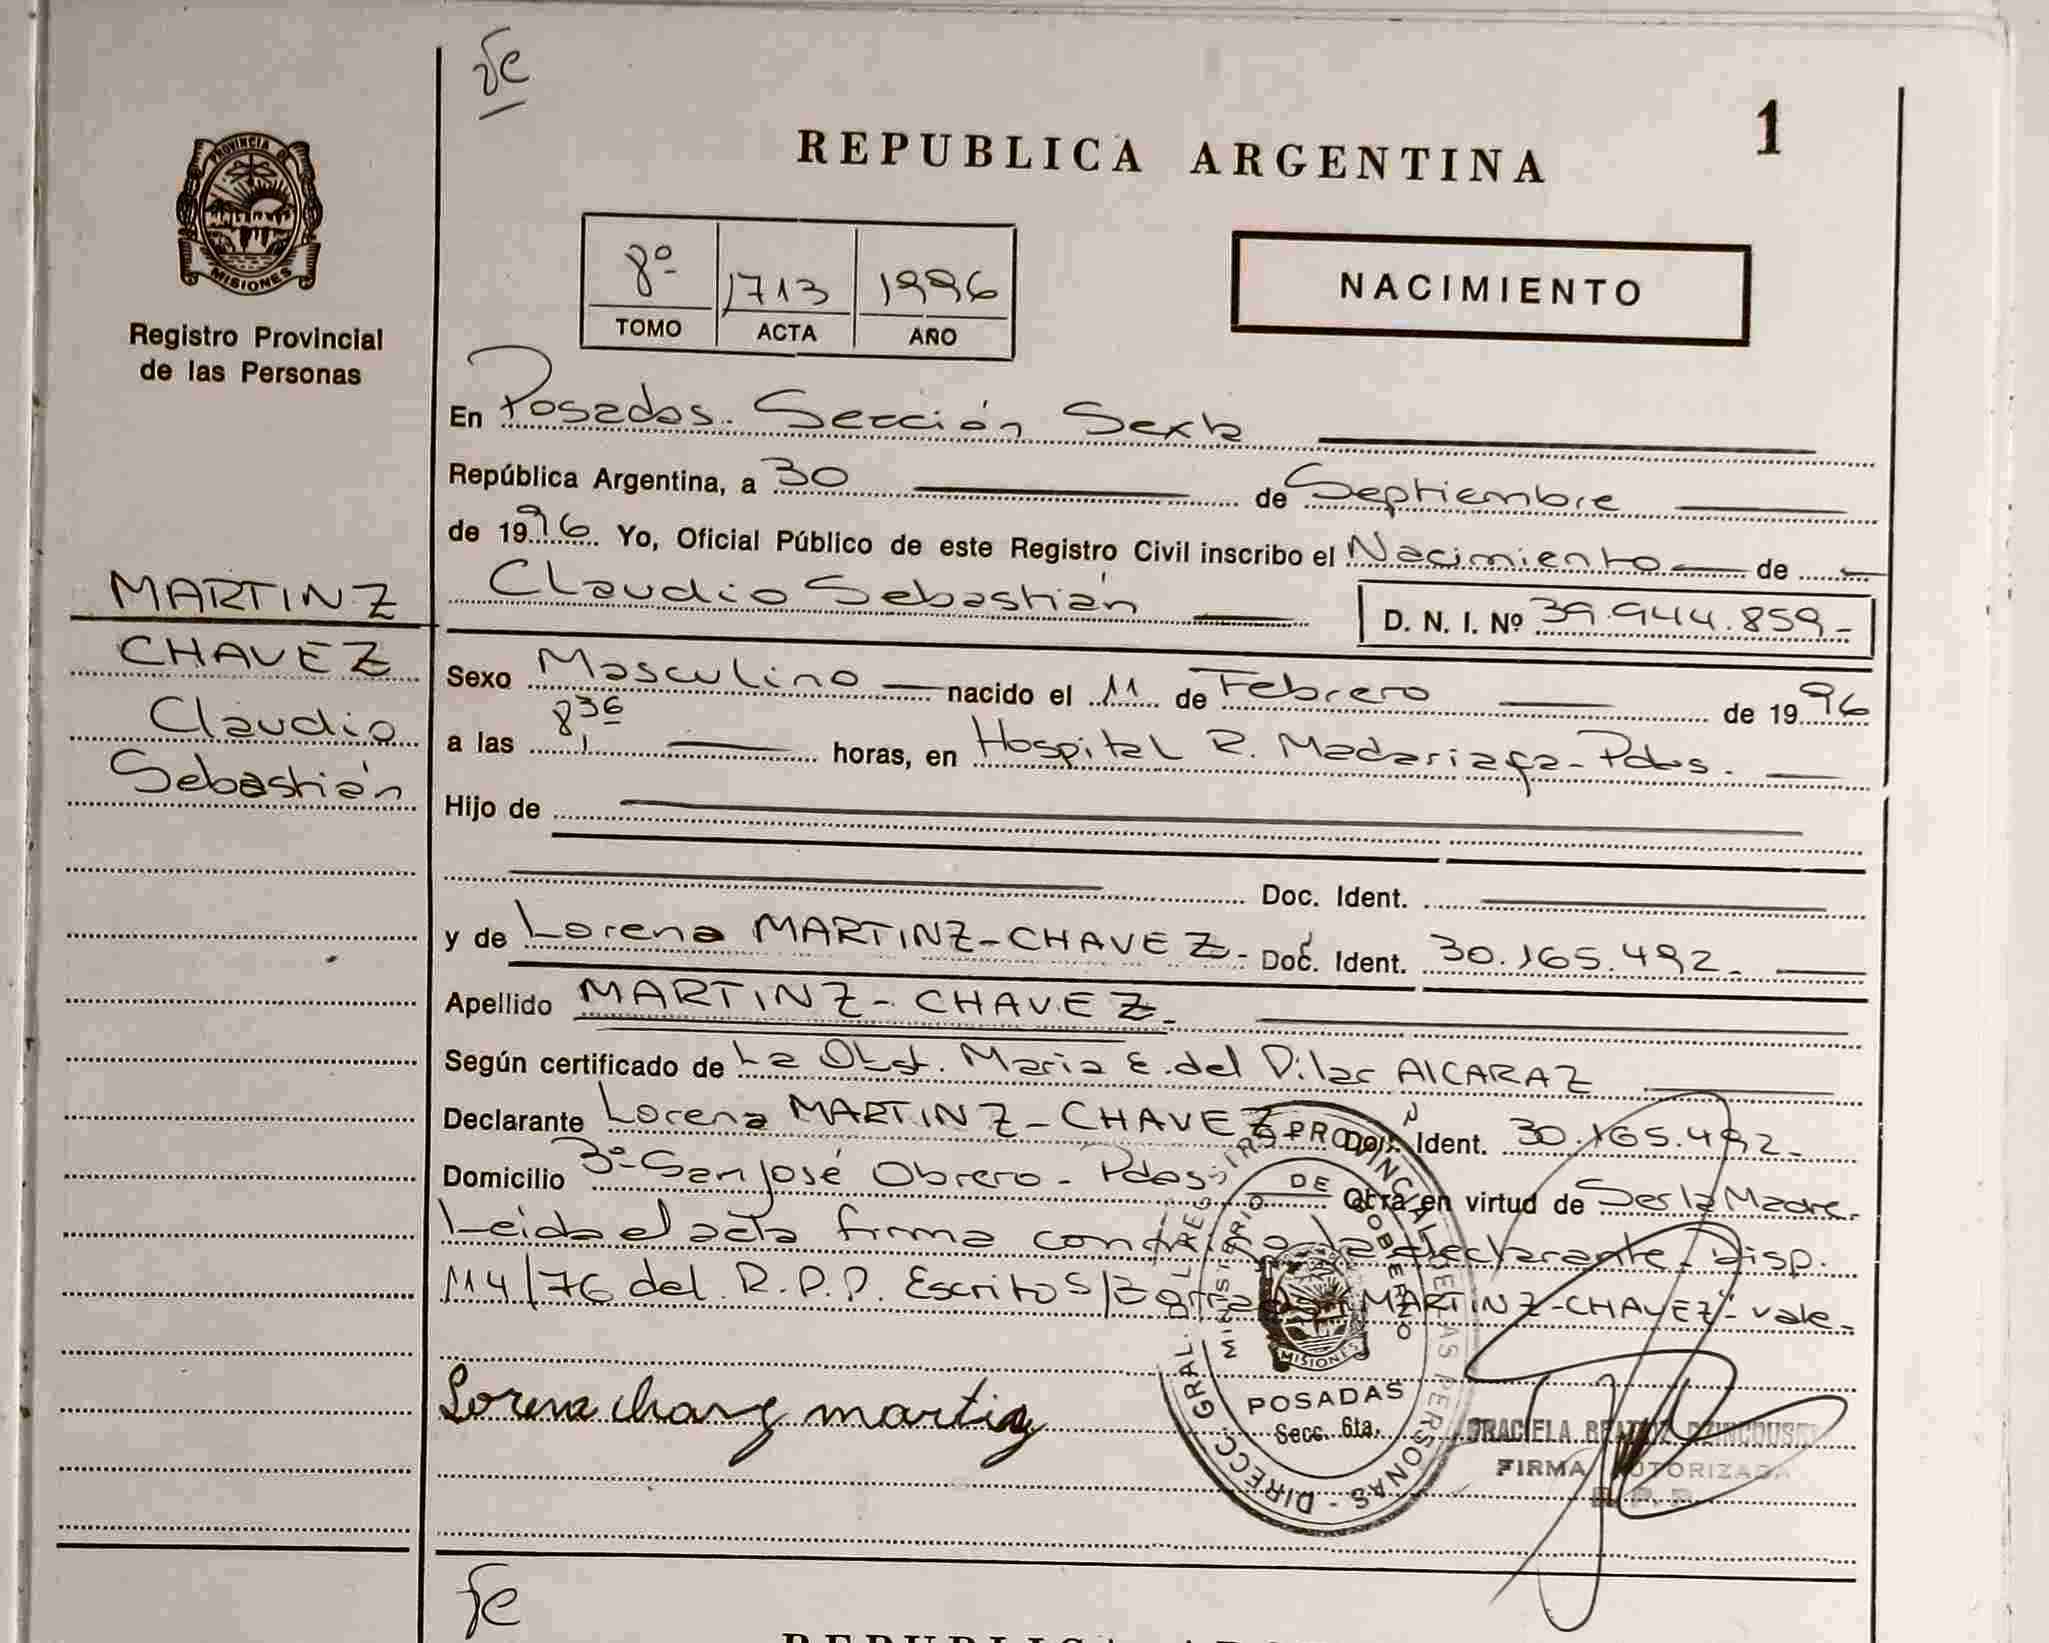 fe
REPUBLICA ARGENTINA
1
PROVINCIA DE
MISIONES
Registro Provincial
de las Personas
8º 1713 1996
TOMO ACTA AÑO
NACIMIENTO
En Posadas. Sección Sexta
República Argentina, a 30 de Septiembre
de 1996. Yo, Oficial Público de este Registro Civil inscribo el Nacimiento de
Claudio Sebastián D. N. I. Nº 39.944.859-
MARTINZ
CHAVEZ
Claudio
Sebastián
Sexo Masculino nacido el 11 de Febrero de 1996
a las 8,36 horas, en Hospital R. Madariaga - Pdas.
Hijo de
Doc. Ident.
y de Lorena MARTINZ-CHAVEZ - Doc. Ident. 30.165.492-
Apellido MARTINZ - CHAVEZ-
Según certificado de La Obst. Maria E. del Pilar AlCARAZ
Declarante Lorena MARTINZ - CHAVEZ Doc. Ident. 30.165.492-
Domicilio 3º San José Obrero - Pdas Obra en virtud de Ser la Madre.
Leida el acta firma conmigo la declarante. Disp.
114/76 del R.P.P. Escrito s/ "MARTINZ-CHAVEZ" - vale -
Lorena chavez martinz
DIRECC. GRAL. DEL REGISTRO PROVINCIAL DE LAS PERSONAS -
MINISTERIO DE GOBIERNO
MISIONES
POSADAS
Secc. 6ta.
GRACIELA BEATRIZ
FIRMA AUTORIZADA
R. P. P.
fe